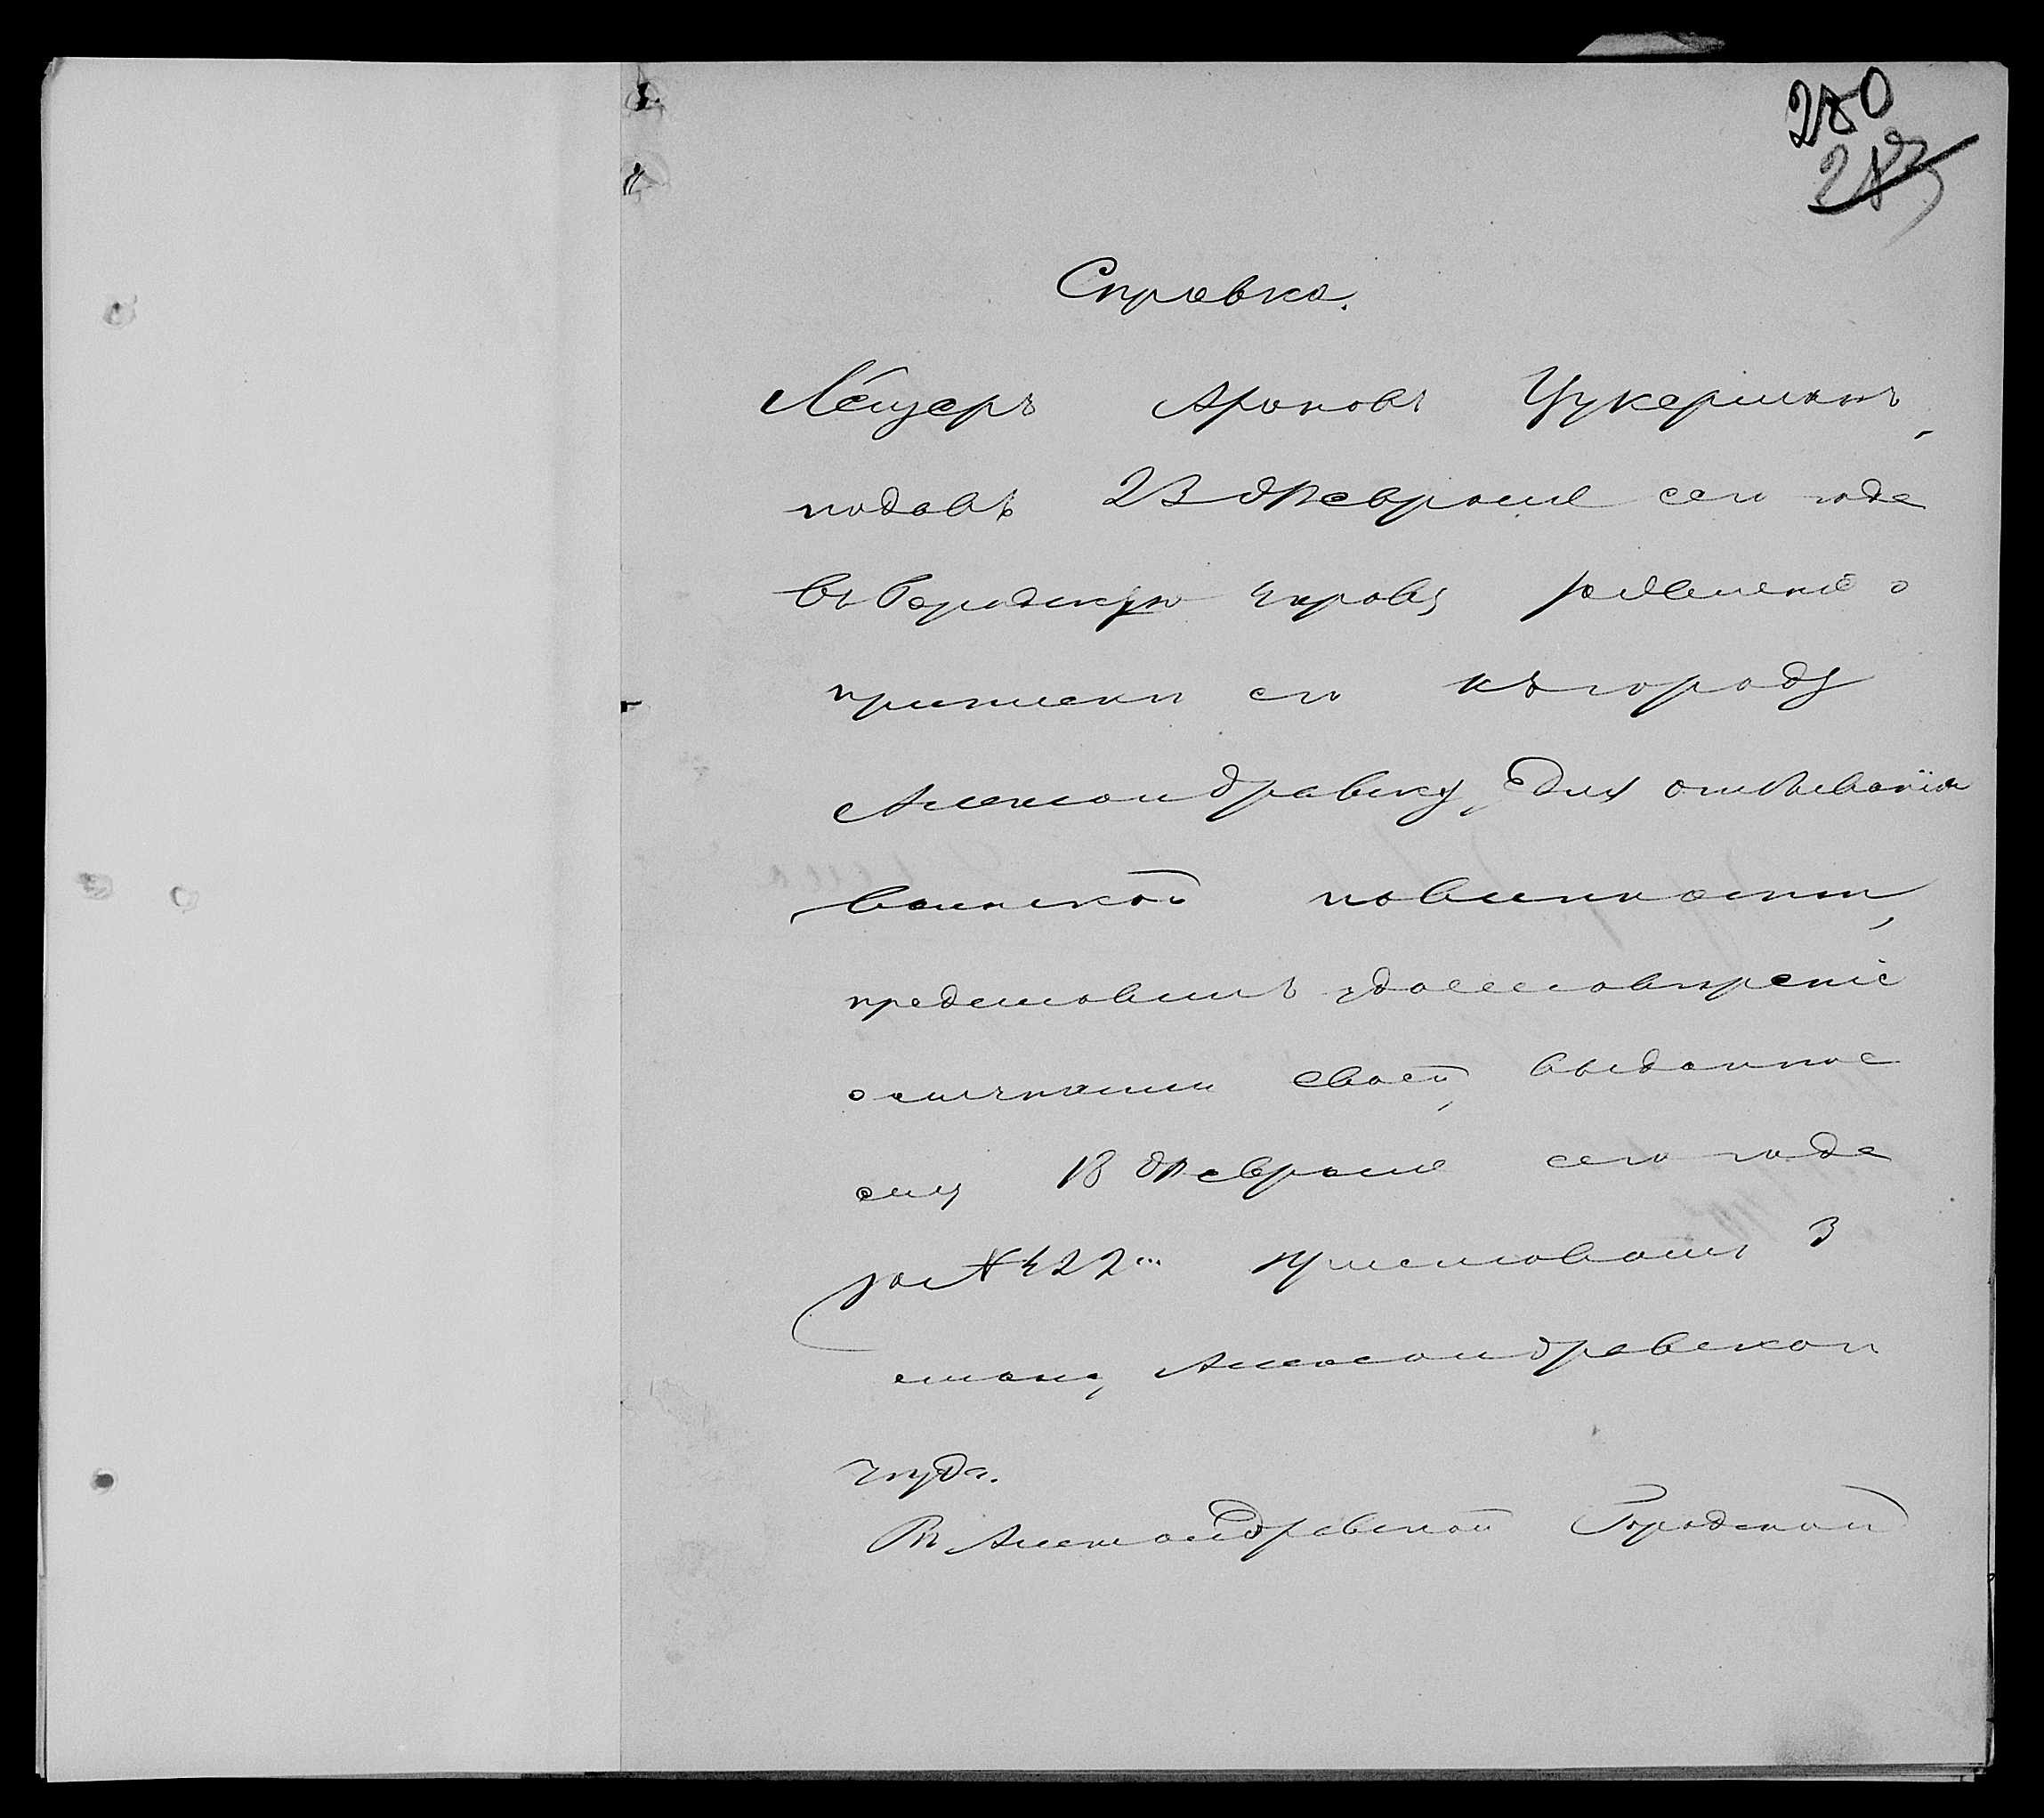 280
283
Справка.
Лейзеръ Ароновъ Цукерманъ,
подавъ 23 Февраля сего года
въ Городскую Управу заявленіе о
приписки его къ городу
Александровску, для отбыванія
воинской повинности,
представилъ удостовѣреніе
о личности своей, выданное
ему 18 Февраля сего года
за № 422 Приставомъ 3
стана, Александровскаго
уѣзда.
Въ Александровской Городской